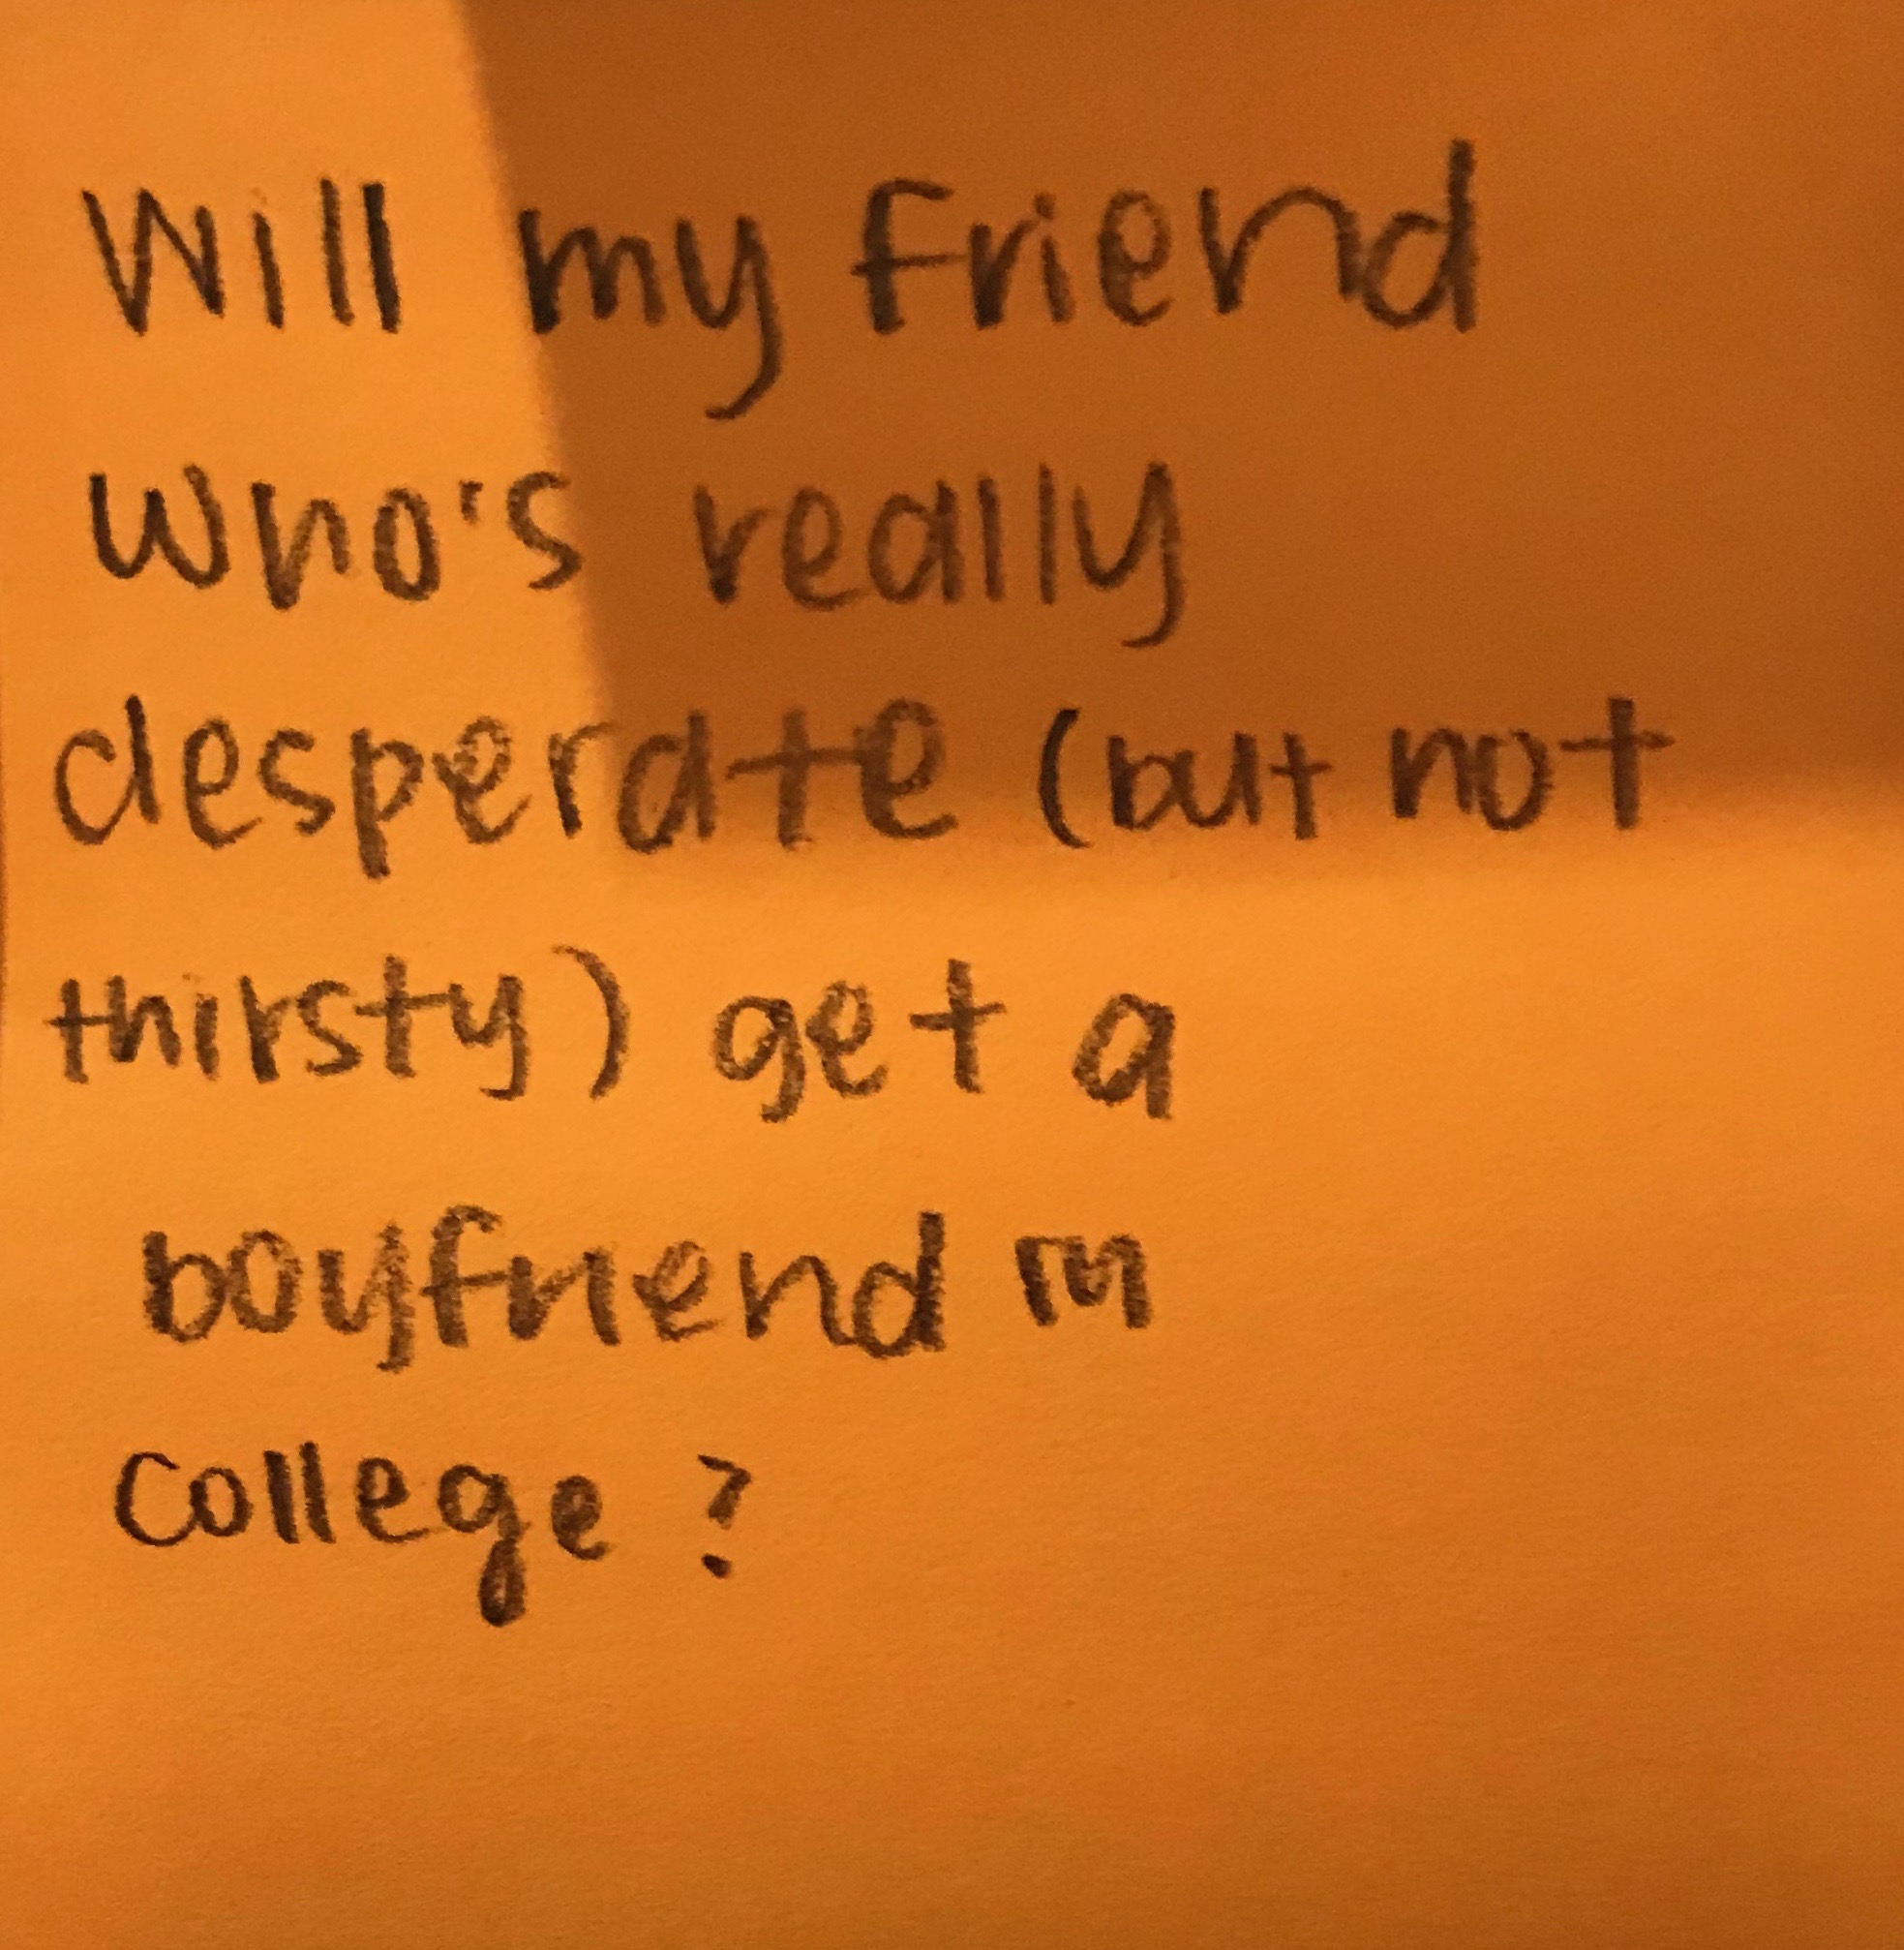 Will my friend
who's really
desperate (but not
thirsty) get a
boyfriend in
college?